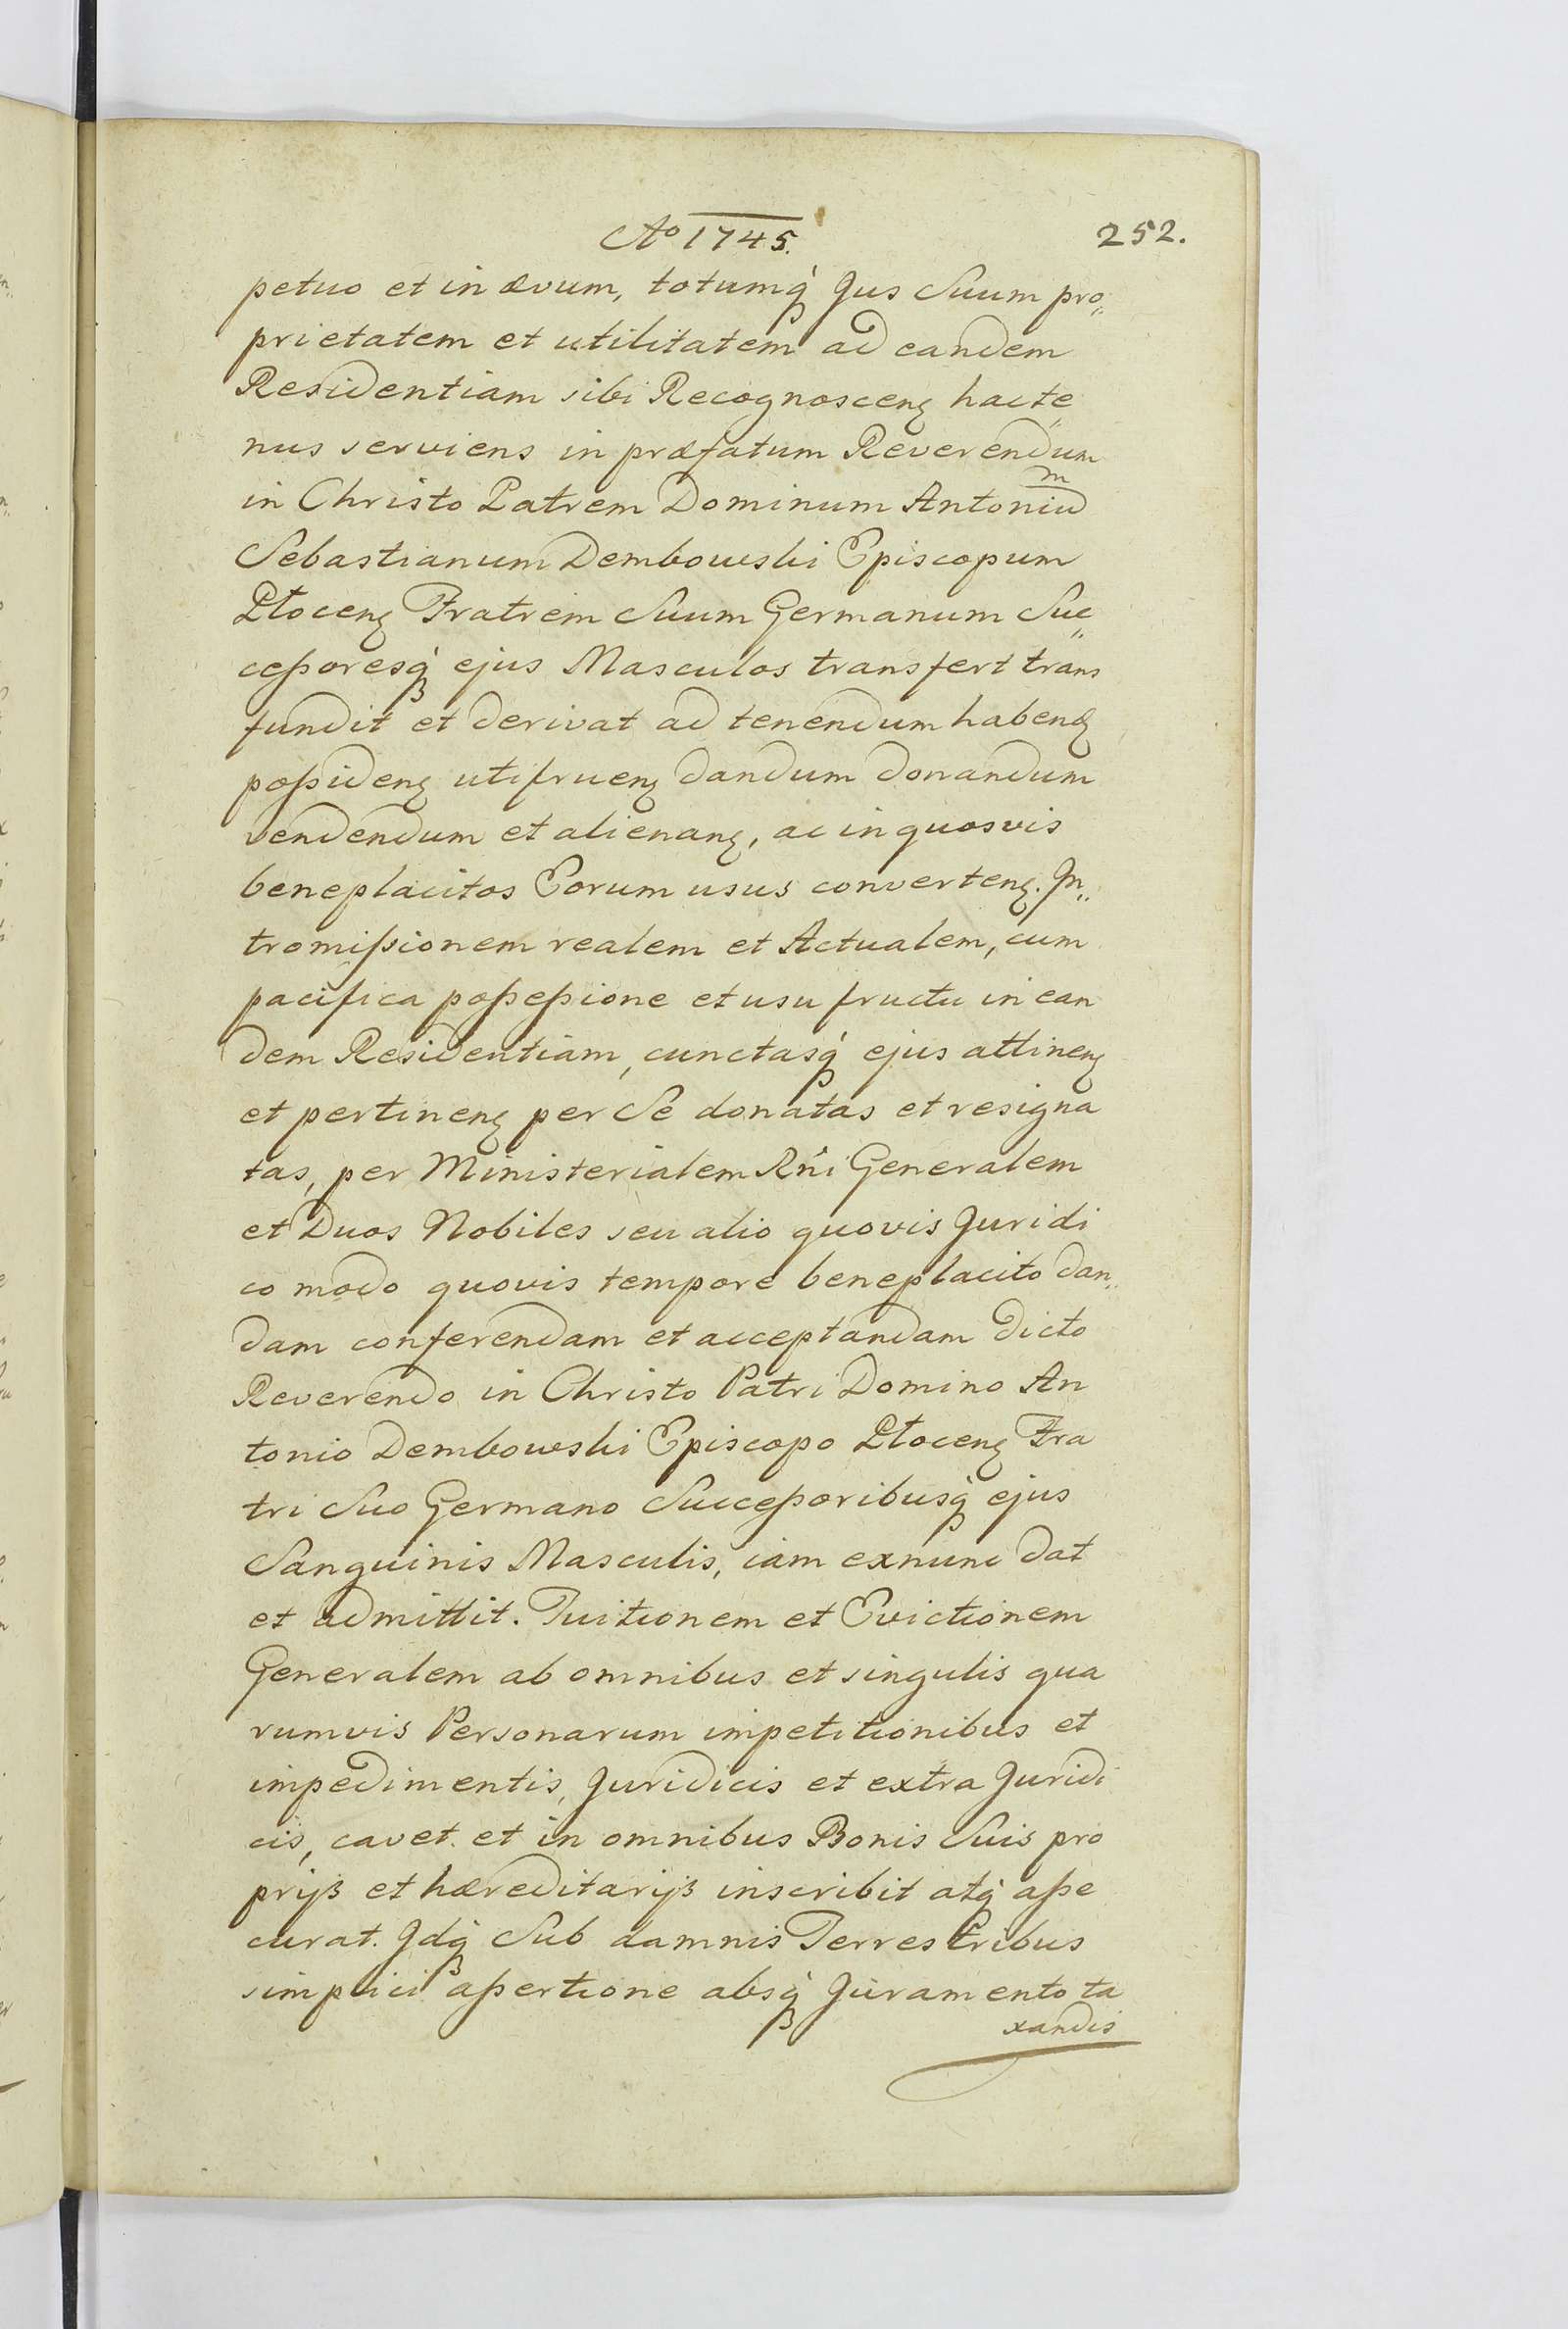 Aº 1745.
252.
petuo et in ævum, totumq́ꝫ Jus Suum pro„
prietatem et utilitatem ad eandem
Residentiam sibi Recognoscenꝫ hacte„
nus serviens in præfatum Reverendum
in Christo Patrem Dominum Antoniu͞m
Sebastianum Dembowski Episcopum
Płocenꝫ Fratrem Suum Germanum Suc„
ceßoresq́ꝫ ejus Masculos transfert trans
fundit et derivat ad tenendum habenꝫ
poßidenꝫ utifruenꝫ dandum donandum
vendendum et alienanꝫ, ac in quosvis
beneplacitos Eorum usus convertenꝫ. In„
tromißionem realem et Actualem, cum
pacifica poßeßione et usu fructu in ean
dem Residentiam, cunctasq́ꝫ ejus attinenꝫ
et pertinenꝫ per Se donatas et resigna
tas, per Ministerialem Rńi Generalem
et Duos Nobiles seu alio quovis Juridi
co modo quovis tempore beneplacito dan„
dam conferendam et acceptandam dicto
Reverendo in Christo Patri Domino An
tonio Dembowski Episcopo Płocenꝫ Fra
tri Suo Germano Succeßoribusq́ꝫ ejus
Sanguinis Masculis, iam exnunc dat
et admittit. Tuitionem et Evictionem
Generalem ab omnibus et singulis qua
rumvis Personarum impetitionibus et
impedimentis, Juridicis et extra Juridi
cis, cavet. et in omnibus Bonis Suis pro
prijs et hæreditarijs inscribit atq́ꝫ aße
curat. Idq́ꝫ Sub damnis Terrestribus
simplici aßertione absq́ꝫ Juramento ta
xandis